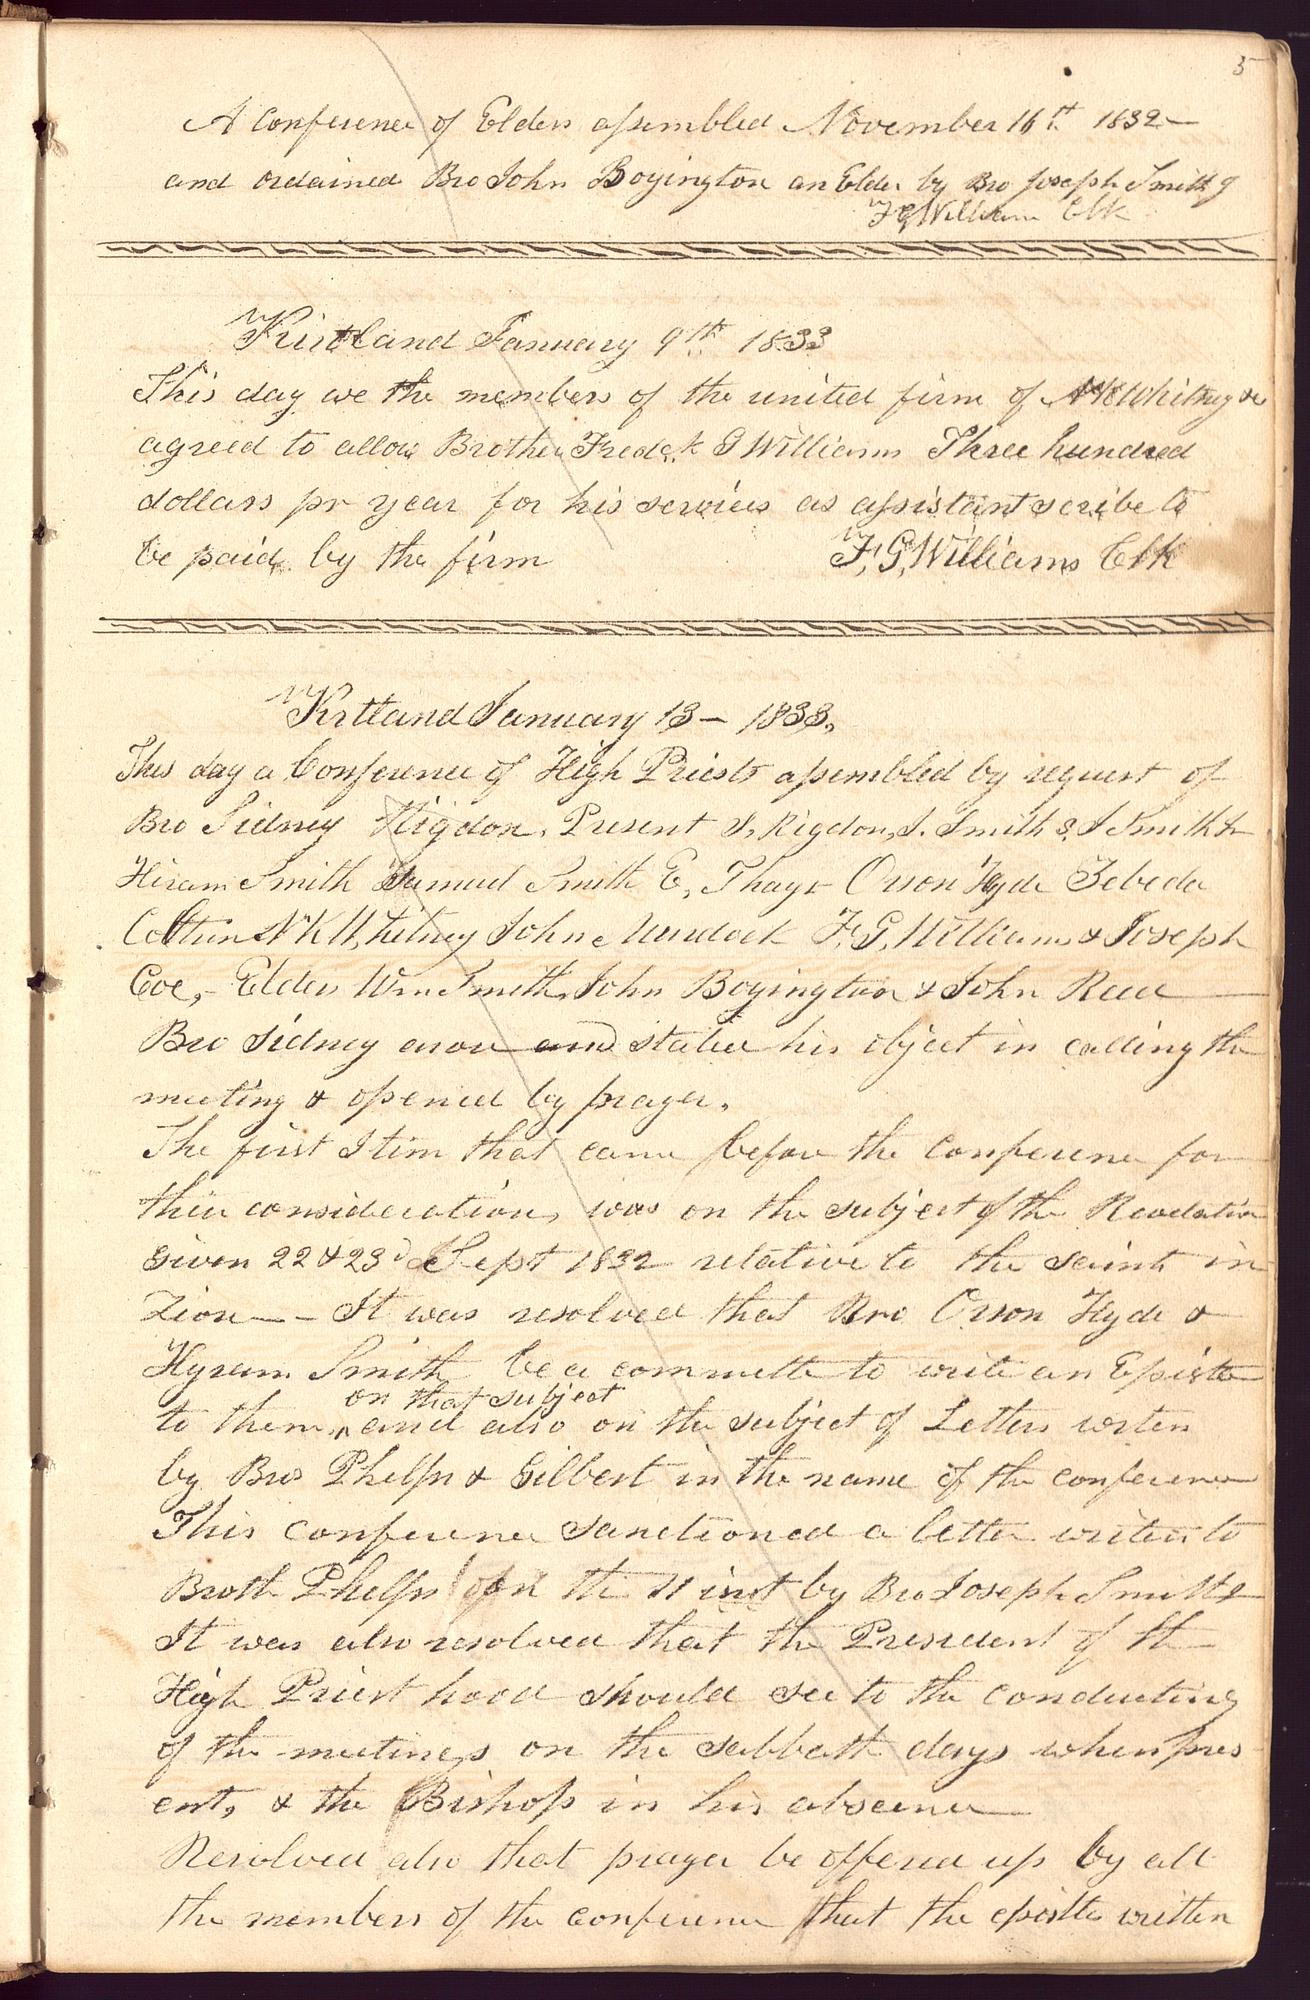 5
A Conference of Elders assembled November 16th 1832—
and ordained Bro John Boyington an Elder by Bro Joseph Smith J
F G William Clk
Kirtland January 9th 1833
This day we the members of the united firm of N K Whitney &c
agreed to allow Brother Fredck G Williams Three hundred
dollars pr year for his services as assistant scribe to
be paid by the firm F, G, Williams Clk
Kirtland January 13— 1833,
This day a Conference of High Priests assembled by request of
Bro Sidney Rigdon, Present S, Rigdon, J. Smith S, J Smith Jr
Hiram Smith Samuel Smith E, Thayr Orson Hyde Zebede
Coltrin N K Whitney John Murdock F, G, Williams & Joseph
Coe,— Elders Wm Smith, John Boyington & John Reed
Bro Sidney arose and stated his object in calling the
meeting & opened by prayer,
The first Item that came before the Conference for
their consideration, was on the subject of the Revelation
Given 22 & 23d Sept 1832 relative to the saints in
Zion—— It was resolved that Bro Orson Hyde &
Hyram Smith be a committe to write an Epistle
on that subject
to them, ^ and also on the subject of Letters writen
by Bros Phelps & Gilbert in the name of the conference
This conference sanctioned a letter writen to
Broth Phelps on the 11 inst by Bro Joseph Smith J
It was also resolved that the President of the
High Priest hood should see to the conducting
of the meetings on the sabbath days when pres
ent, & the Bishop in his absence—
Resolved also that prayer be offered up by all
the members of the conference that the epistle written